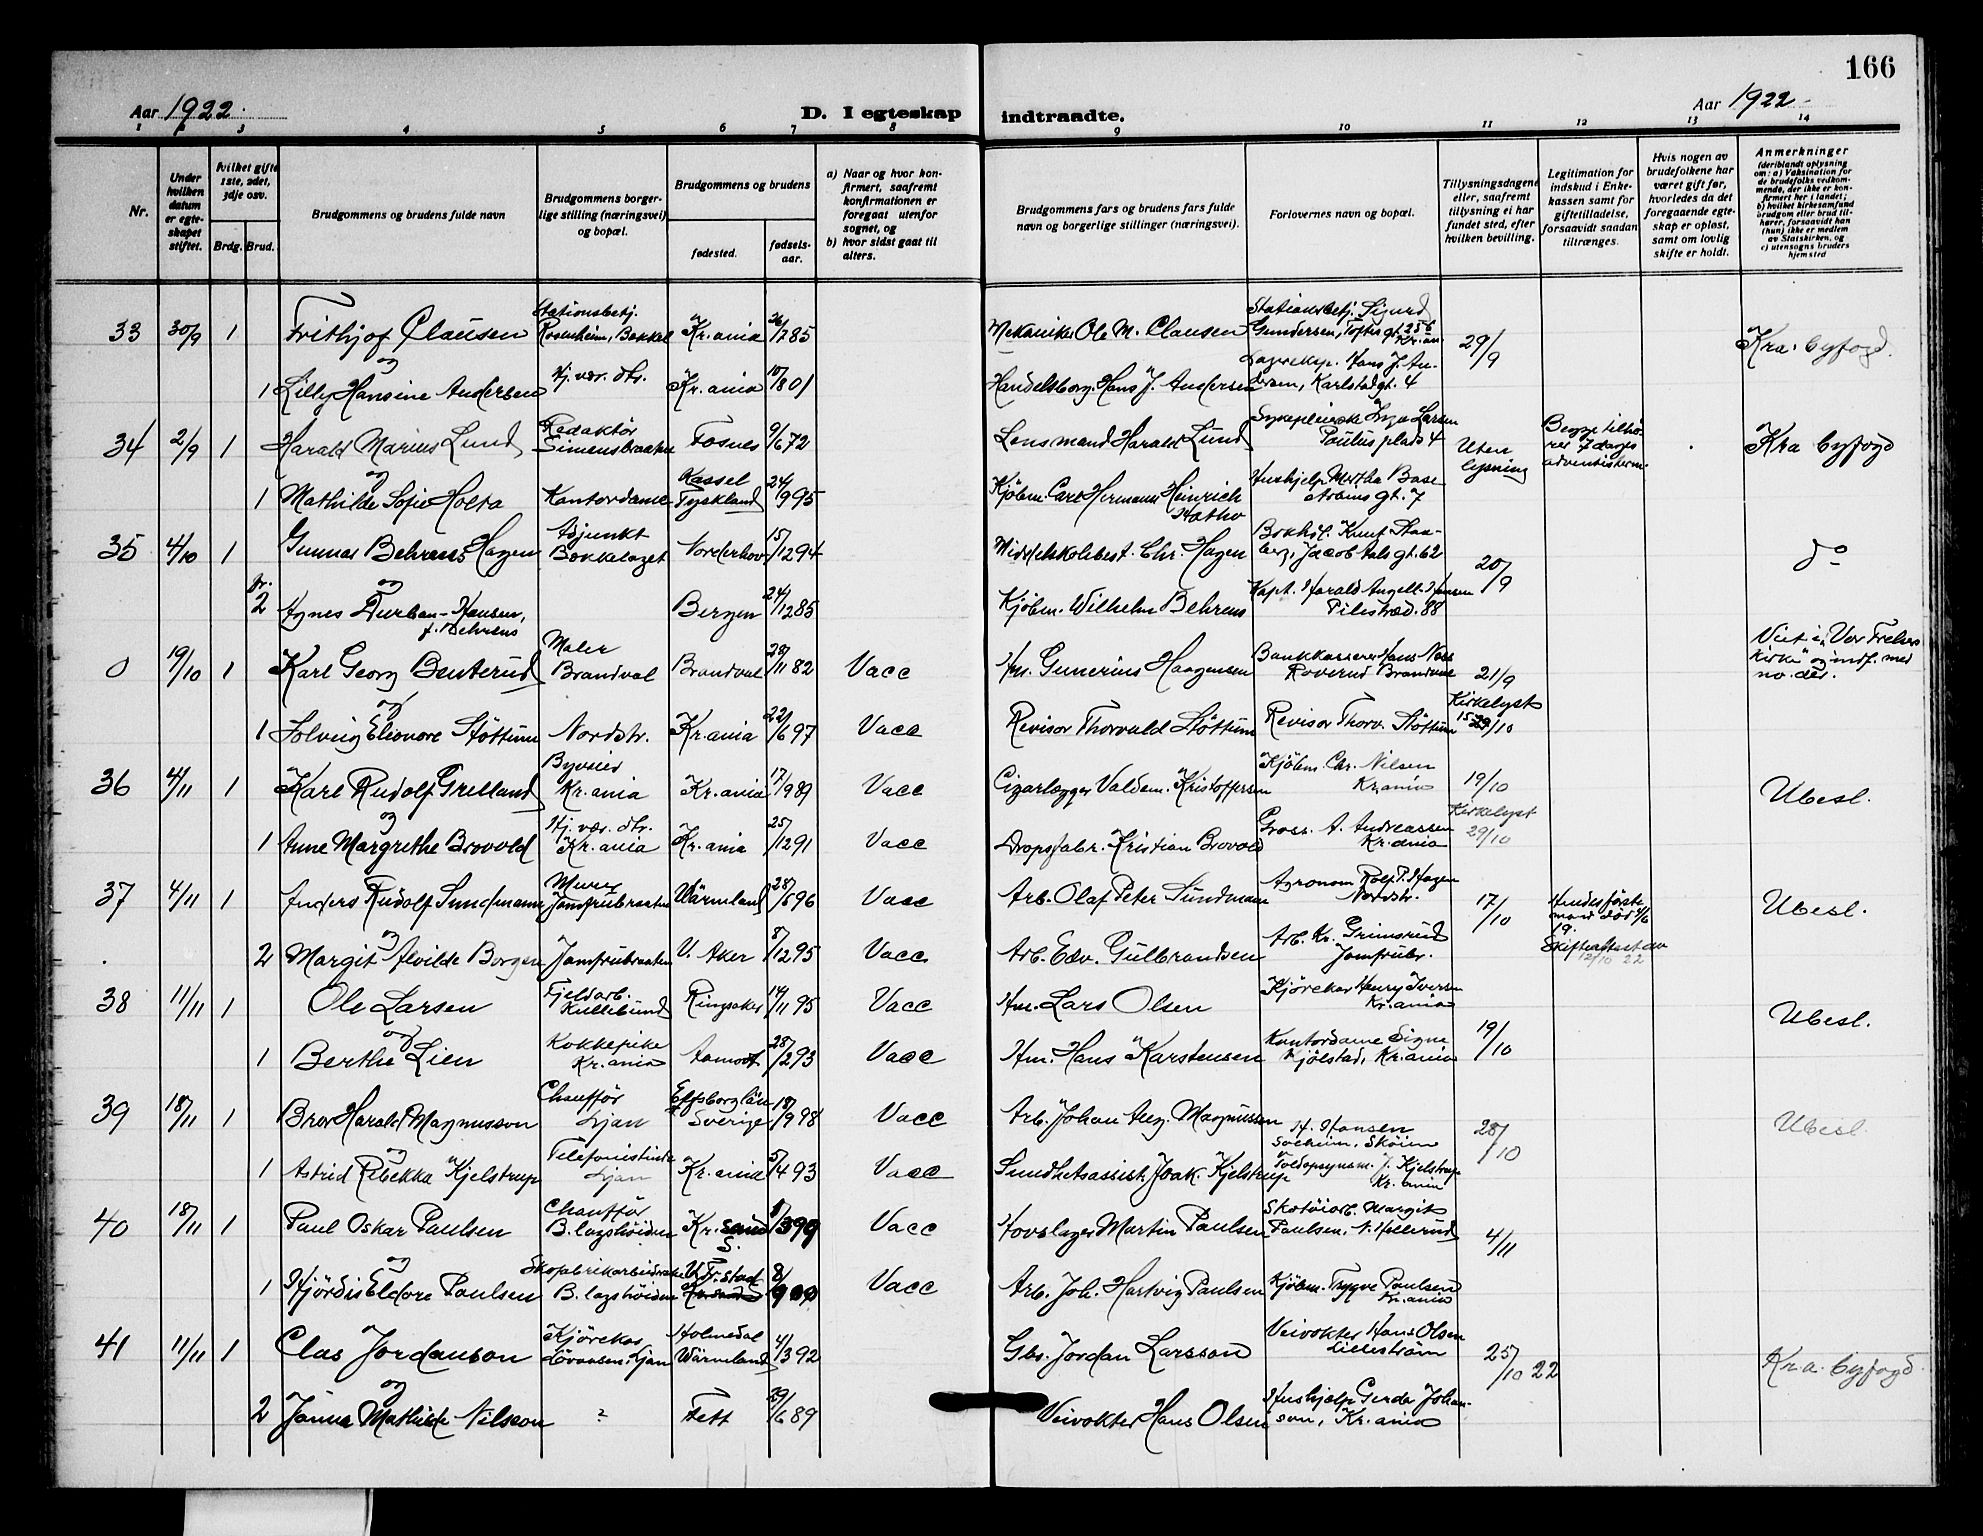 166
Aar 1922. D. I egteskap indtraadte. Aar 1922
1 2 3 4 5 6 7 8 9 10 11 12 13 14
Nr.
Under hvilken datum er egteskapet stiftet.
Hvilket gifte 1ste, 2det, 3dje osv.
Brdg. Brud.
Brudgommens og brudens fulde navn
Brudgommens borgerlige stilling (næringsvei) og bopæl.
Brudgommens og brudens
fødested. fødselsaar.
a) Naar og hvor konfirmert, saafremt konfirmationen er foregaat utenfor sognet, og
b) hvor sidst gaat til alters.
Brudgommens fars og brudens fars fulde navn og borgerlige stillinger (næringsvei).
Forlovernes navn og bopæl.
Tillysningsdagene eller, saafremt tillysning ei har fundet sted, efter hvilken bevilling.
Legitimation for indskud i Enkekassen samt for giftetilladelse, forsaavidt saadan tiltrænges.
Hvis nogen av brudefolkene har været gift før, hvorledes da det foregaaende egteskap er opløst, samt om lovlig skifte er holdt.
Anmerkninger (deriblandt oplysning om: a) Vaksination for de brudefolks vedkommende, der ikke er konfirmert her i landet; b) hvilket kirkesamfund brudgom eller brud tilhører, forsaavidt han (hun) ikke er medlem av Statskirken, og c) utensogns bruders hjemsted
33 30/9 1 Frithjof Clausen Stationsbetj. Rosenheim, Bakkel Kr.ania 26/7 85 Mekaniker Ole M. Clausen Stationsbetj. Sigurd Gundersen, Toftesgt. 25 b Kr.an 29/9 Kra. byfogd.
og
1 Lilly Hansine Andersen Hj. vær. dtr. Kr.ania 10/8 01 Handelsborg. Hans J. Andersen Lagereksp. Hans J. Andersen, Karlstadgt. 4
34 2/9 1 Harald Marius Lund Redaktör Simensbraaten Fosnes 9/6 72 Lensmand Harald Lund Sykepleierske Inga Larsen Paulus plads 4 Uten lysning Begge tilhører 7 dages adventisterne. Kra byfogd
og
1 Mathilde Sofie Holta Kontordame Kassel Tyskland 24/9 95 Kjøbm. Carl Hermann Heinrich Hushjelp Martha Base gt. 7
35 4/10 1 Gunnar Behrens Hagen Adjunkt Bækkelaget Norderhov 15/12 94 Middelskolebest. Chr. Hagen Bokhol. Knut Staaberg, Jacob Aals gt. 62 20/9 do
og
fr. 2 Agnes Durban-Hansen, f. Behrens Bergen 24/12 85 Kjöbm. Wilhelm Behrens Kapt. Harald Angell-Hansen Pilestræd. 88
0 19/10 1 Karl Georg Benterud Maler Brandval Brandval 28/11 82 Vacc Hm. Gunerius Haagensen Bankkasserer Hans Ness Roverud Brandval 21/9 Viet i "Vor Frelsers Kirke" og indf. med no. der.
og
1 Solveig Eleonore Stöttum Nordstr. Kr.ania 22/6 97 Vacc Revisor Thorvald Stöttum Revisor Thorv. Stöttum Kirkelyst 15 29/10
36 4/11 1 Karl Rudolf Grelland Byvæsen Kr.ania Kr.ania 17/9 89 Vacc Cigarlægger Valdem. Kristoffersen Kjöbm. Chr. Nilsen Kr.ania 19/10 Ubesl.
og
1 Anne Margrethe Brovold Hj. vær. dtr. Kr.ania Kr.ania 25/12 91 Vacc Dropsfabr. Kristian Brovold Gross. A. Andreassen Kr.ania Kirkelyst 29/10
37 4/11 1 Anders Rudolf Sundmann Murer Jomfrubraaten Wärmland 28/6 96 Vacc Arb. Olaf Peter Sundmann Agronom Rolf P. Hagen Nordstr. 17/10 Hendes förste mand död 4/6 19. Ubesl.
og
2 Margit Alvilde Borgen Jomfrubraaten V. Aker 8/12 95 Vacc Arb. Edv. Gulbrandsen Arb. Kr. Grimsrud Jomfrubr. Skifteattest av 12/10 22
38 11/11 1 Ole Larsen Fjeldarb. Kullebund Ringsaker 14/11 95 Vacc Hm. Lars Olsen Kjörekar Henry Iversen Kr.ania 19/10 Ubesl.
og
1 Berthe Lien Kokkepike Kr.ania Aamodt 28/2 93 Vacc Hm. Hans Karstensen Kontordame Signe Kjölstad, Kr.ania
39 18/11 1 Bror Harald Magnusson Chaufför Ljan Elfsborg län Sverige 18/9 98 Vacc Arb. Johan Aug. Magnussen H. Hansen Solheim, Sköien 28/10 Ubesl.
og
1 Astrid Rebekka Kjelstrup Telefonistinde Ljan Kr.ania 5/4 93 Vacc Sundhetsassist. Joak. Kjelstrup Toldopsynsm. J. Kjelstrup Kr.ania
40 18/11 1 Paul Oskar Paulsen Chaufför B.lagshöiden Kr.sand S. 1/3 99 Vacc Hovslager Martin Paulsen Skotöiarb. Margit Paulsen, N. Hellerud 4/11
og
1 Hjördis Eldore Paulsen Skofabrikarbeiderske B.lagshöiden Fr.stad 8/9 00 Vacc Arb. Joh. Hartvig Paulsen Kjöbm. Trygve Paulsen Kr.ania
41 11/11 1 Clas Jordanson Kjörekar Lövaasen, Ljan Holmedal Wärmland 4/3 92 Gbr. Jordan Larsson Veivokter Hans Olsen Lilleström 25/10 22 Kr.a. byfogd.
og
2 Janna Mathilde Nilsson ? Fett 29/6 89 Veivokter Hans Olsen Hushjælp Gerda Johanson, Kr.ania